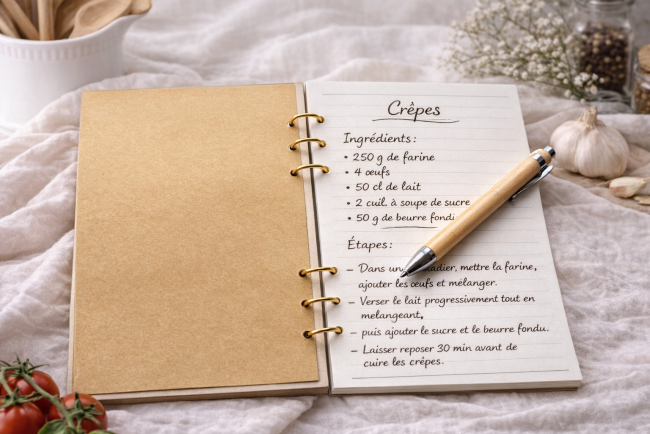 Crêpes
Ingrédients :
• 250 g de farine
• 4 œufs
• 50 cl de lait
• 2 cuil. à soupe de sucre
• 50 g de beurre
Étapes :
– Dans mettre la farine,
ajouter les œufs et mélanger.
– Verser le lait progressivement tout en
melangeant,
– puis ajouter le sucre et le beurre fondu.
– Laisser reposer 30 min avant de
cuire les crêpes.